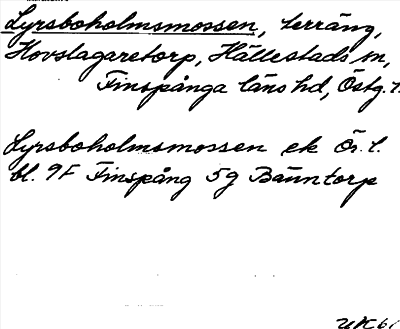 Lyrsboholmsmossen, terräng,
Hovslagaretorp, Hällestads sn,
Finspånga läns hd, Östg. l.
Lyrsboholmsmossen ek Ör. l.
bl. 9F Finspång 5g Bänntorp